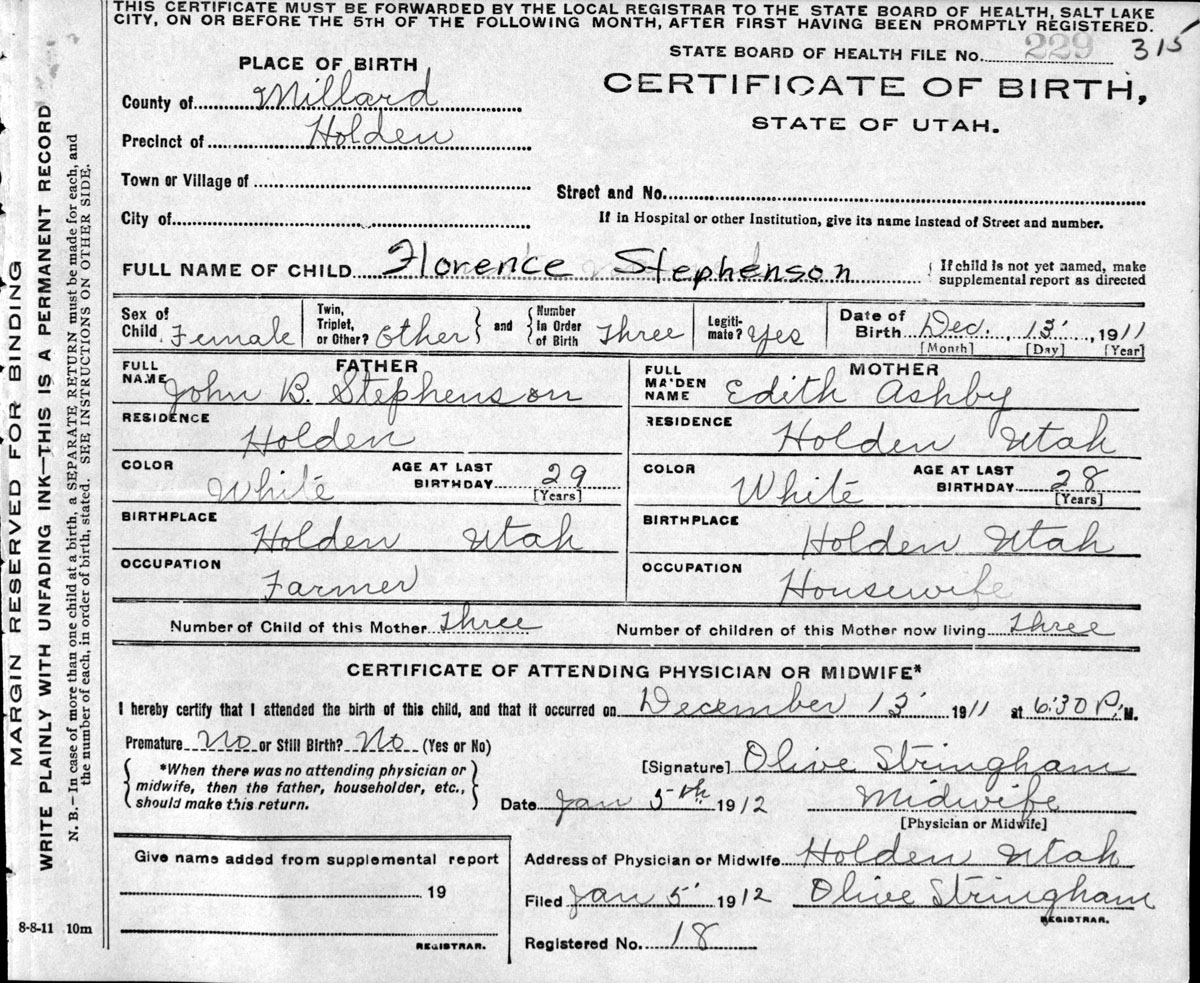 THIS CERTIFICATE MUST BE FORWARDED BY THE LOCAL REGISTRAR TO THE STATE BOARD OF HEALTH, SALT LAKE
CITY, ON OR BEFORE THE 5TH OF THE FOLLOWING MONTH, AFTER FIRST HAVING BEEN PROMPTLY REGISTERED.
STATE BOARD OF HEALTH FILE No. 229 315
PLACE OF BIRTH
CERTIFICATE OF BIRTH,
STATE OF UTAH.
County of Millard
Precinct of Holden
Town or Village of
Street and No.
City of
If in Hospital or other Institution, give its name instead of Street and number.
FULL NAME OF CHILD Florence Stephenson
{ If child is not yet named, make
supplemental report as directed
Sex of Child Female
Twin, Triplet, or Other? Other } and { Number In Order of Birth Three
Legiti-mate? Yes
Date of Birth Dec. 13, 1911
[Month] [Day] [Year]
FATHER
FULL NAME John B. Stephenson
RESIDENCE
Holden
COLOR White
AGE AT LAST BIRTHDAY 29
[Years]
BIRTHPLACE
Holden Utah
OCCUPATION
Farmer
MOTHER
FULL MAIDEN NAME Edith Ashby
RESIDENCE
Holden Utah
COLOR White
AGE AT LAST BIRTHDAY 28
[Years]
BIRTHPLACE
Holden Utah
OCCUPATION
Housewife
Number of Child of this Mother Three
Number of children of this Mother now living Three
CERTIFICATE OF ATTENDING PHYSICIAN OR MIDWIFE*
I hereby certify that I attended the birth of this child, and that it occurred on December 13 1911 at 6:30 P. M.
Premature No or Still Birth? No (Yes or No)
{ *When there was no attending physician or
midwife, then the father, householder, etc.,
should make this return. }
[Signature] Olive Stringham
Date Jan 5th 1912 Midwife
[Physician or Midwife]
Give name added from supplemental report
19
REGISTRAR.
Address of Physician or Midwife Holden Utah
Filed Jan 5 1912 Olive Stringham
REGISTRAR.
Registered No. 18
8-8-11 10m
MARGIN RESERVED FOR BINDING
WRITE PLAINLY WITH UNFADING INK—THIS IS A PERMANENT RECORD
N. B.—In case of more than one child at a birth, a SEPARATE RETURN must be made for each, and
the number of each, in order of birth, stated. SEE INSTRUCTIONS ON OTHER SIDE.